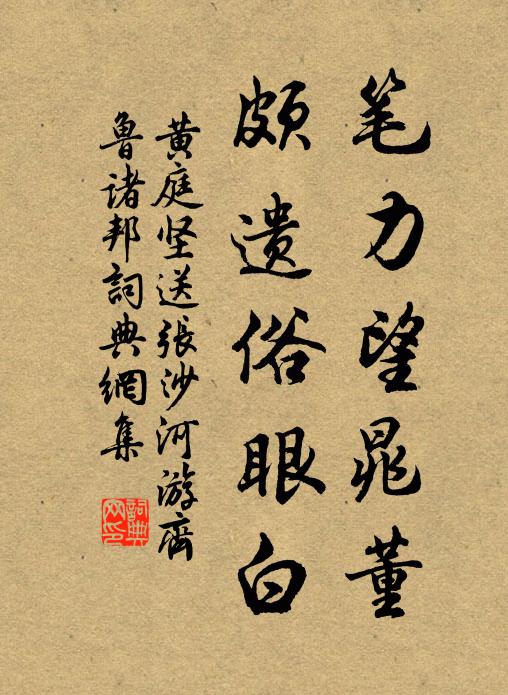 笔力望晁董
颇遗俗眼白
黄庭坚送張沙河游齊
魯诸邦詞典網集
詞典
网印